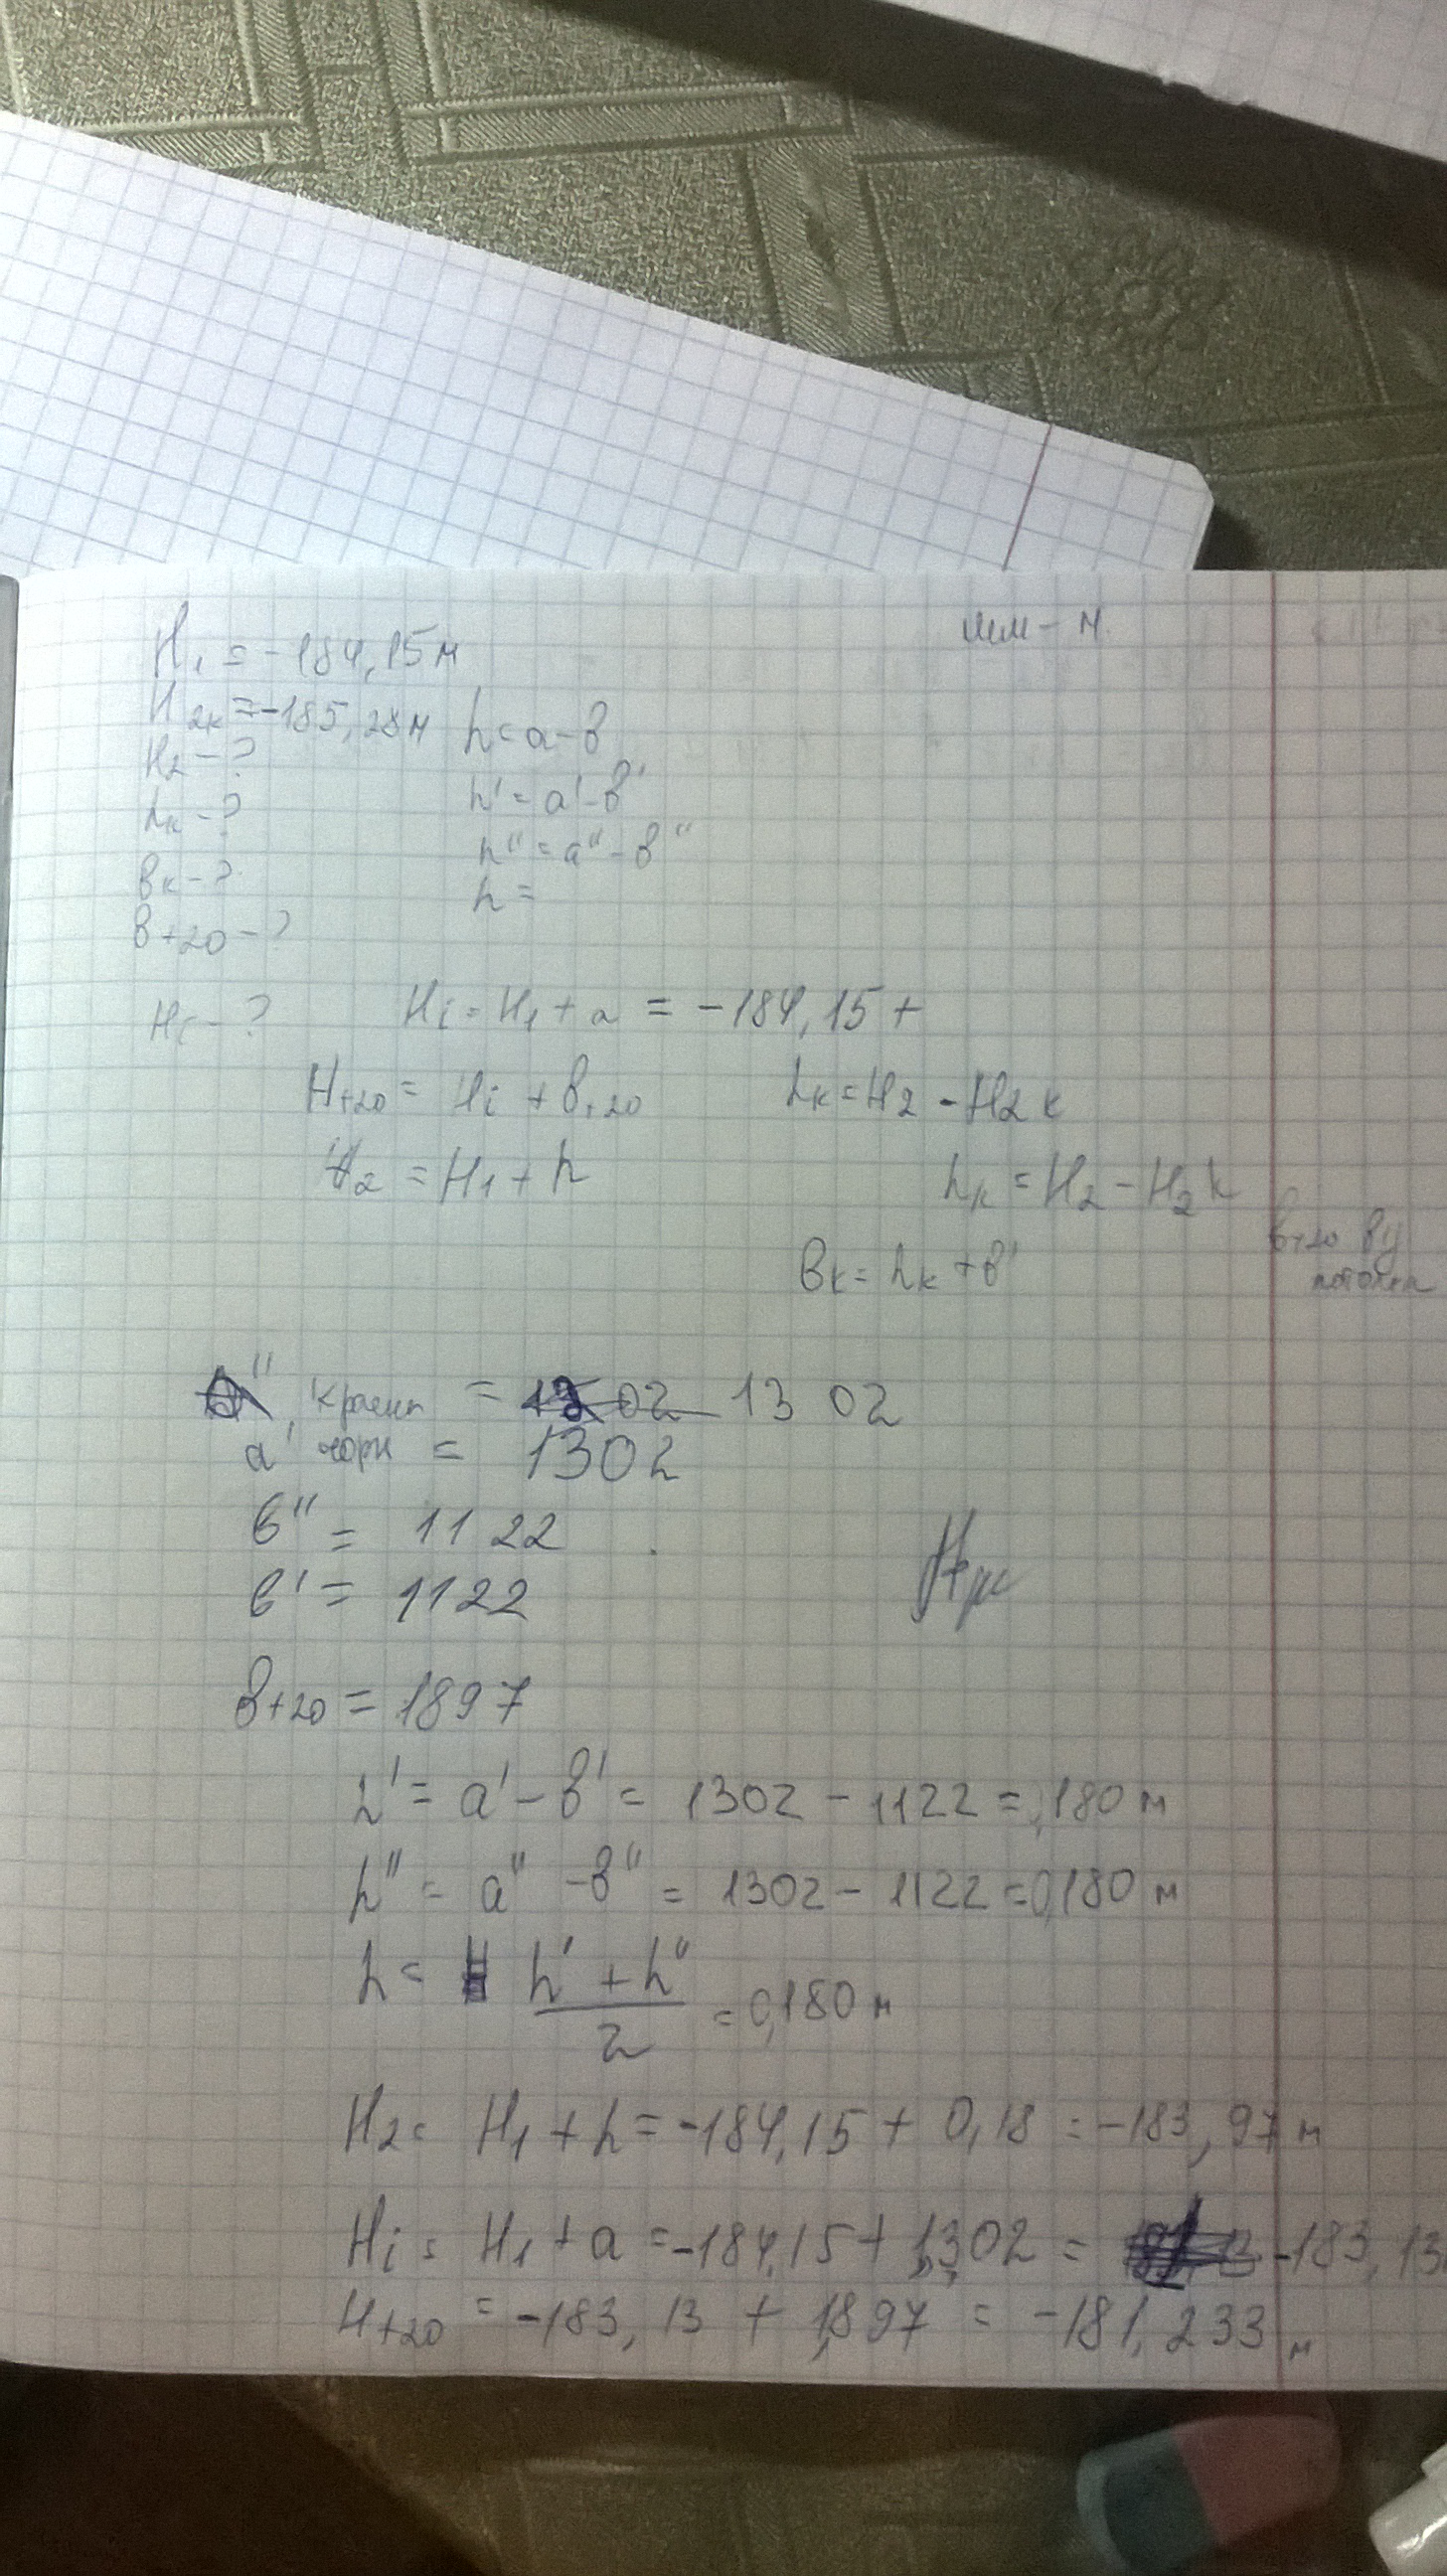 мм - м
H₁ = -184,15 м
H₂ₖ = -185,28 м h = a - в
H₂ - ? h' = a' - в'
hₖ - ? h'' = a'' - в''
вₖ - ? h =
в₊₂₀ - ?
Hᵢ - ? Hᵢ = H₁ + a = -184,15 +
H₊₂₀ = Hᵢ + в₊₂₀ hₖ = H₂ - H₂ₖ
H₂ = H₁ + h hₖ = H₂ - H₂ₖ
в₊₂₀
вₖ = hₖ + в' потолка
'' красн = 1302
a' чорн = 1302
в'' = 1122
в' = 1122
в₊₂₀ = 1897
h' = a' - в' = 1302 - 1122 = 0,180 м
h'' = a'' - в'' = 1302 - 1122 = 0,180 м
h = (h' + h'')/2 = 0,180 м
H₂ = H₁ + h = -184,15 + 0,18 = -183,97 м
Hᵢ = H₁ + a = -184,15 + 1,302 = -183,13
H₊₂₀ = -183,13 + 1,897 = -181,233 м